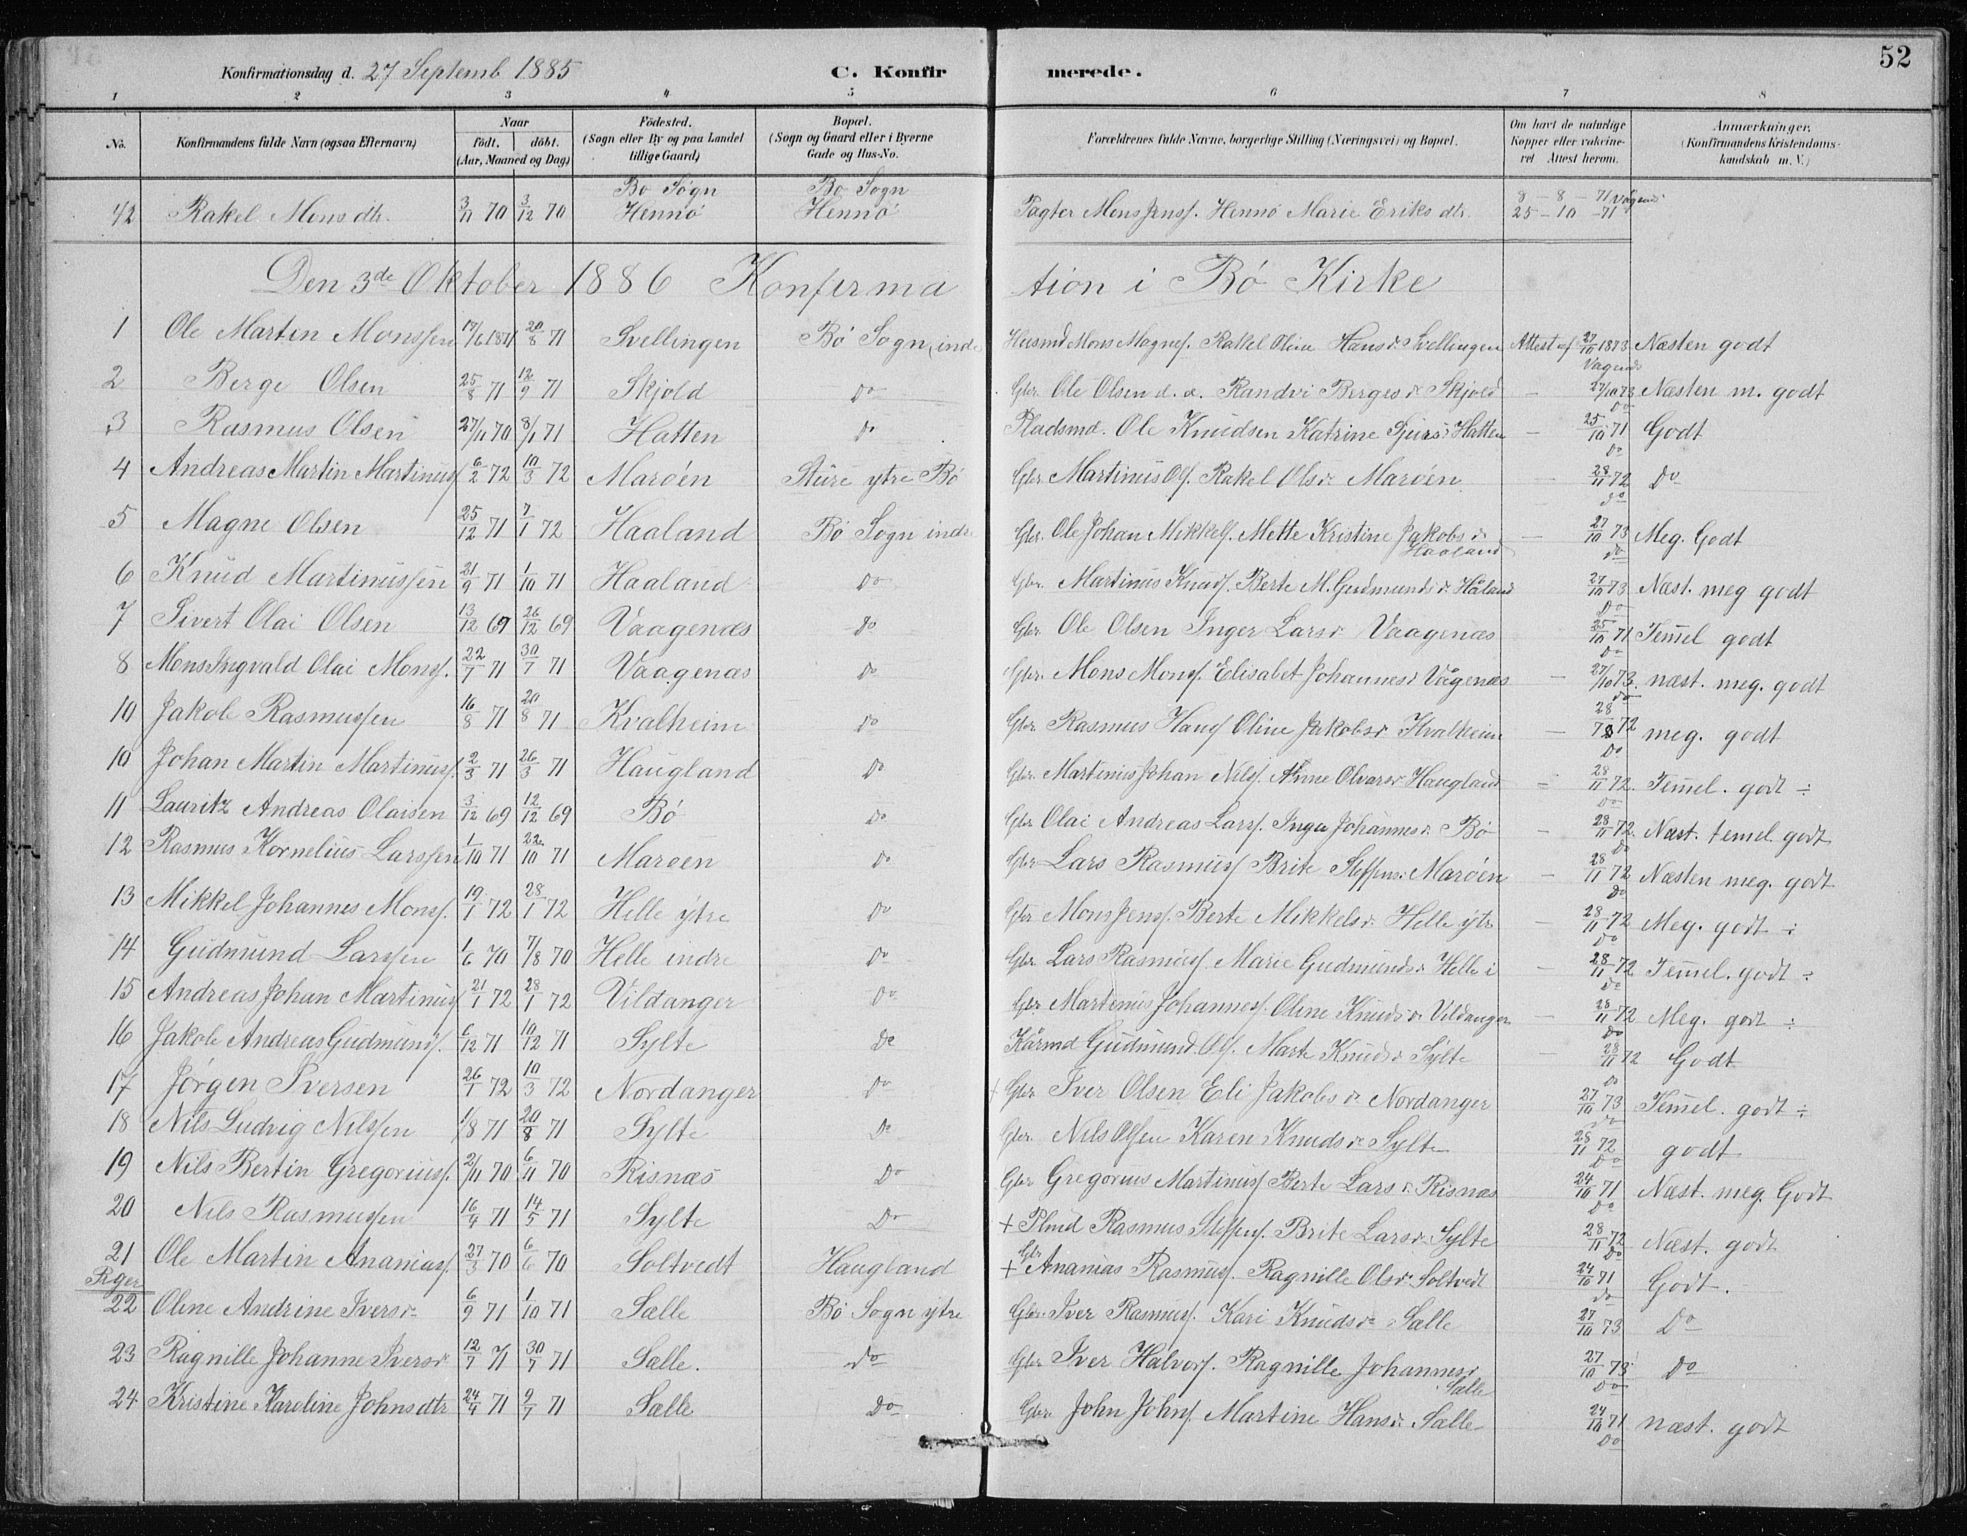 52
Konfirmationsdag d. 27 Septemb 1885 C. Konfir merede.
1 2 3 4 5 6 7 8
No. Konfirmandens fulde Navn (ogsaa Efternavn) Naar født, døbt. (Aar, Maaned og Dag) Fødested. (Sogn eller By og paa Landet tillige Gaard) Bopæl. (Sogn og Gaard eller i Byerne Gade og Hus-No. Forældrenes fulde Navne, borgerlige Stilling (Næringsvei) og Bopæl. Om havt de naturlige Kopper eller vakcineret Attest herom. Anmærkninger. (Konfirmandens Kristendomskundskab m. V.)
42 Rakel Mons dtr. 3/11 70 3/12 70 Bø Sogn Hennø Bø Sogn Hennø Pagter Mons Jenss. Hennø Marie Eriks dtr. 8-8-71 25-10-71
Den 3de Oktober 1886 Konfirmation i Bø Kirke
1 Ole Martin Monssen 17/6 1871 20/8 71 Svellingen Bø Sogn, indr Husmd Mons Magness. Rakel Oline Hans dr Svellingen Attest af 27/10 1873 Næsten godt
2 Berge Olsen 25/8 71 12/9 71 Skjold Do Gbr. Ole Olsen d. æ. Randvi Berges dr Skjold — 27/10 73 Næsten m. godt
3 Rasmus Olsen 27/11 70 8/1 71 Hatten Do Pladsmd. Ole Knudsen Katrine Sjurs dr Hatten — 25/10 71 Godt
4 Andreas Martin Martinuss 6/2 72 10/3 72 Marøen Sture ytre Bø Gbr. Martinus Ols. Rakel Ols dr Marøen — 28/11 72 Do
5 Magne Olsen 25/12 71 7/1 72 Haaland Bø Sogn indr Gbr. Ole Johan Mikkels. Mette Kristine Jakobs dr Haaland — 27/10 73 Meg. Godt
6 Knud Martinussen 21/9 71 1/10 71 Haaland Do Gbr. Martinus Knuds. Berte M. Gudmunds dr Håland 27/10 73 Næst. meg godt
7 Sivert Olai Olsen 13/12 69 26/12 69 Vaagenæs Do Gbr. Ole Olsen Inger Lars dr Vaagenæs 25/10 71 Temel godt
8 Mons Ingvald Olai Monss. 22/7 71 30/7 71 Vaagenæs Do Gbr. Mons Monss. Elisabet Johannes dr Vågenæs — 27/10 73. næst. meg. godt
10 Jakob Rasmussen 16/8 71 20/8 71 Kvalheim Do Gbr. Rasmus Hans Oline Jakobs dr Kvalheim — 28 72 meg. godt
10 Johan Martin Martinuss. 2/3 71 26/3 71 Haugland Do Gbr. Martinus Johan Nilss. Anne Olvars dr Haugland = 28/11 72. Temel. godt ÷
11 Lauritz Andreas Olaisen 3/12 69 12/12 69 Bø Do Gbr Olai Andreas Larss. Inger Johannes dr. Bø — 28/11 72. Næst. temel. godt
12 Rasmus Kornelius Larssen 1/10 71 22/10 71 Marøen Do Gbr Lars Rasmuss Brite Steffens dr Marøen — 28/11 72 Næsten meg. godt
13 Mikkel Johannes Monss. 19/1 72 28/1 72 Helle ytre Do Gbr Mons Jenss. Berte Mikkels dr Helle ytr — 28/11 72 Meg. godt ÷
14 Gudmund Larssen 1/6 70 7/8 70 Helle indre Do Gbr Lars Rasmuss. Marie Gudmunds dr Helle i — 28/11 72 Temel. godt ÷
15 Andreas Johan Martinuss 21/1 72 28/1 72 Vildanger Do Gbr Martinus Johanness. Oline Knuds dr Vildanger — 28/11 72 Meg. godt ÷
16 Jakob Andreas Gudmunds. 6/12 71 10/12 71 Sylte Do Kårmd Gudmund Ols. Marte Knuds dr Sylte — 28/11 72 Godt
17 Jørgen Iversen 26/1 72 10/3 72 Nordanger Do + Gbr. Iver Olsen Eli Jakobs dr Nordanger 27/10 73 Temel. godt ÷
18 Nils Ludvig Nilssen 1/8 71 20/8 71 Sylte Do Gbr. Nils Olsen Karen Knuds dr Sylte 28/11 72 godt
19 Nils Bertin Gregoriuss. 2/11 70 6/11 70 Risnæs Do Gbr Gregorius Martinuss Berte Lars dr Risnæs 24/10 71 Næst. meg. Godt
20 Nils Rasmussen 16/4 71 14/5 71 Sylte Do + Plmd Rasmus Steffens. Brite Lars dr Sylte 28/11 72 Næst. godt
21 Ole Martin Ananiass. 27/3 70 6/6 70 Soltvedt Haugland + Gbr Ananias Rasmuss. Ragnille Ols dr Soltvedt 24/10 71 Godt.
Piger
22 Oline Andrine Ivers dr 6/9 71 1/10 71 Sælle Bø Sogn ytre Gbr. Iver Rasmuss. Kari Knuds dr Sælle 27/10 73 Do
23 Ragnille Johanne Ivers dr 12/7 71 30/7 71 Sælle. Do Gbr Iver Halvors. Ragnille Johannes dr Sælle 27/10 73 Do
24 Kristine Karoline Johns dtr 24/4 71 9/7 71 Sælle Do Gbr. John Johns. Martine Hans dr Sælle 24/10 71 næst. godt